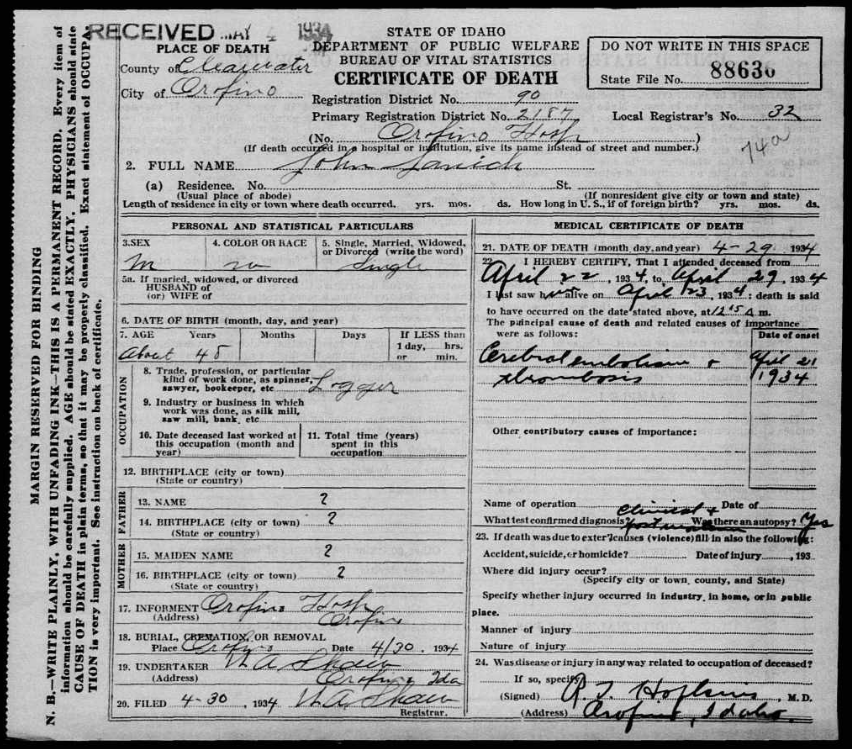 RECEIVED MAY 4 1934
STATE OF IDAHO
DEPARTMENT OF PUBLIC WELFARE
BUREAU OF VITAL STATISTICS
CERTIFICATE OF DEATH
DO NOT WRITE IN THIS SPACE
State File No. 88630
PLACE OF DEATH
County of Clearwater
City of Orofino
Registration District No. 90
Primary Registration District No. 2187 Local Registrar's No. 32
(No. Orofino Hosp )
(If death occurred in a hospital or institution, give its name instead of street and number.)
74a
2. FULL NAME John Janich
(a) Residence. No. St.
(Usual place of abode) (If nonresident give city or town and state)
Length of residence in city or town where death occurred. yrs. mos. ds. How long in U. S., if of foreign birth? yrs. mos. ds.
PERSONAL AND STATISTICAL PARTICULARS
3. SEX 4. COLOR OR RACE 5. Single, Married, Widowed, or Divorced (write the word)
M w Single
5a. If married, widowed, or divorced
HUSBAND of
(or) WIFE of
6. DATE OF BIRTH (month, day, and year)
7. AGE Years Months Days If LESS than 1 day, hrs. or min.
About 48
OCCUPATION
8. Trade, profession, or particular kind of work done, as spinner, sawyer, bookeper, etc Logger
9. Industry or business in which work was done, as silk mill, saw mill, bank, etc
10. Date deceased last worked at this occupation (month and year)
11. Total time (years) spent in this occupation
12. BIRTHPLACE (city or town)
(State or country)
FATHER
13. NAME ?
14. BIRTHPLACE (city or town) ?
(State or country)
MOTHER
15. MAIDEN NAME ?
16. BIRTHPLACE (city or town) ?
(State or country)
17. INFORMENT Orofino Hosp
(Address) Orofino
18. BURIAL, CREMATION, OR REMOVAL
Place Orofino Date 4/30, 1934
19. UNDERTAKER A Shaw
(Address) Orofino Ida
20. FILED 4-30, 1934 A Shaw
Registrar.
MEDICAL CERTIFICATE OF DEATH
21. DATE OF DEATH (month, day, and year) 4-29 1934
22. I HEREBY CERTIFY, That I attended deceased from
April 22, 1934, to April 29, 1934
I last saw him alive on April 23, 1934: death is said
to have occurred on the date stated above, at 12:15 A m.
The principal cause of death and related causes of importance
were as follows: Date of onset
Cerebral embolism + April 21
thrombosis 1934
Other contributory causes of importance:
Name of operation Date of
What test confirmed diagnosis? Clinical + post mortem Was there an autopsy? Yes
23. If death was due to exter'l causes (violence) fill in also the following:
Accident, suicide, or homicide? Date of injury , 193
Where did injury occur?
(Specify city or town, county, and State)
Specify whether injury occurred in industry, in home, or in public
place.
Manner of injury
Nature of injury
24. Was disease or injury in any way related to occupation of deceased?
If so, specify
(Signed) Hopkins M. D.
(Address) Orofino, Idaho.
MARGIN RESERVED FOR BINDING
N. B.—WRITE PLAINLY, WITH UNFADING INK—THIS IS A PERMANENT RECORD. Every item of
information should be carefully supplied. AGE should be stated EXACTLY. PHYSICIANS should state
CAUSE OF DEATH in plain terms, so that it may be properly classified. Exact statement of OCCUPA-
TION is very important. See instruction on back of certificate.